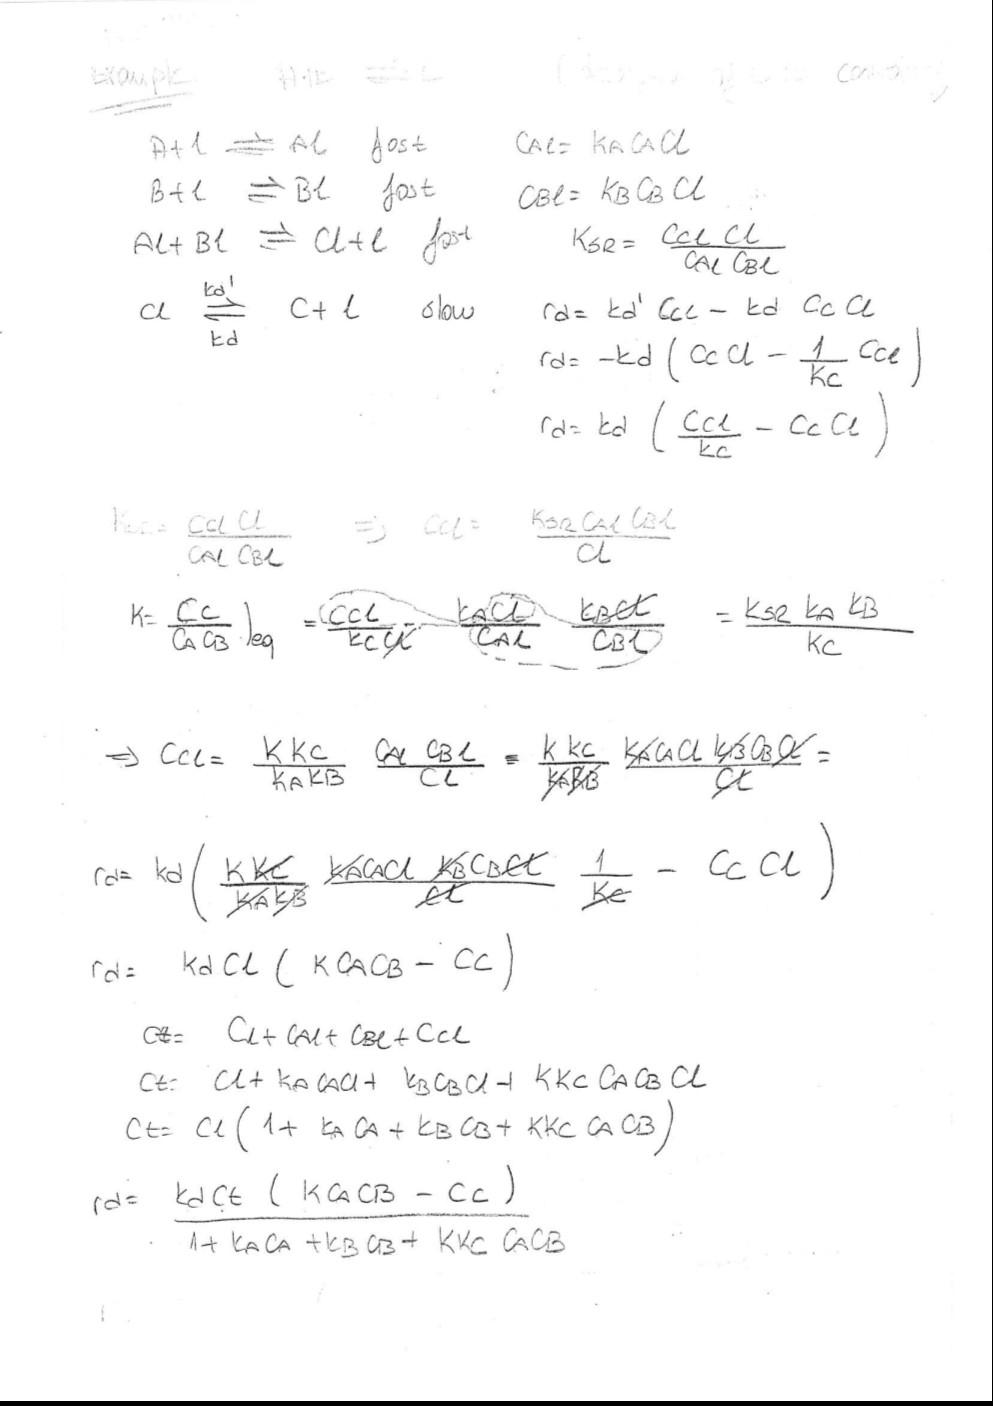 Example A+B ⇌ C
A+l ⇌ Al fast CAl= KA CA Cl
B+l ⇌ Bl fast CBl= KB CB Cl
Al+Bl ⇌ Cl+l fast KSR = CCl Cl / CAl CBl
Cl ⇌ C+l slow rd= kd' CCl - kd Cc Cl
kd'
kd
rd= -kd ( Cc Cl - 1/KC CCl )
rd= kd ( CCl/KC - Cc Cl )
CCl Cl / CAl CBl => CCl= KSR CAl CBl / Cl
K= CC / CA CB )eq = CCl / KC Cl KA Cl / CAl KB Cl / CBl = KSR KA KB / KC
=> CCl= K KC / KA KB CAl CBl / Cl = K KC / KA KB KA CA Cl KB CB Cl / Cl =
rd= kd ( K KC / KA KB KA CA Cl KB CB Cl / Cl 1/KC - Cc Cl )
rd= kd Cl ( K CA CB - CC )
Ct= Cl+ CAl+ CBl+ CCl
Ct= Cl+ KA CA Cl+ KB CB Cl+ K KC CA CB Cl
Ct= Cl ( 1+ KA CA + KB CB + K KC CA CB )
rd= kd Ct ( K CA CB - Cc ) / 1+ KA CA + KB CB + K KC CA CB